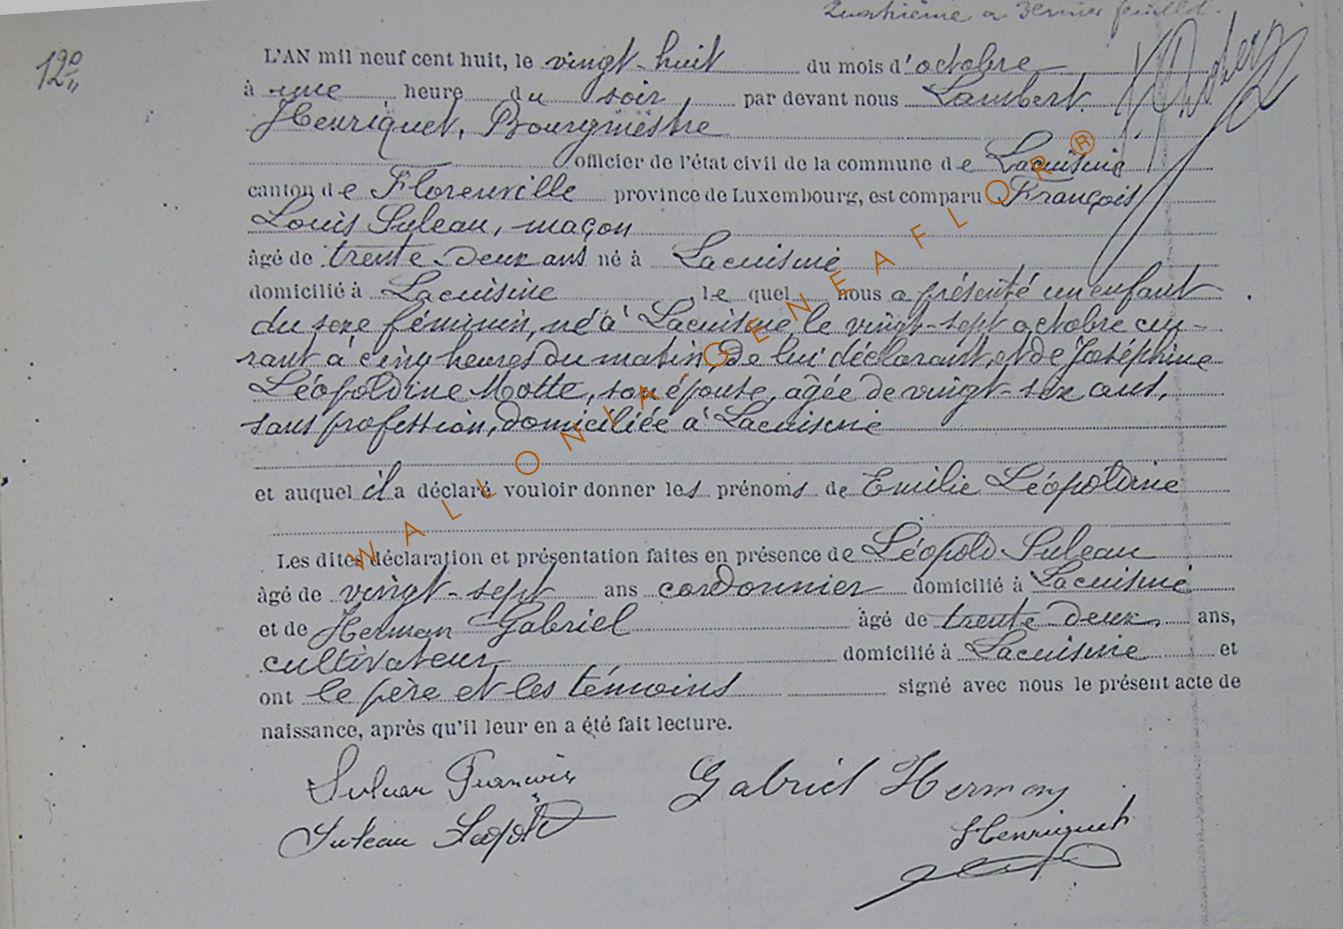 Quatrième et dernier feuillet.
12º
L'AN mil neuf cent huit, le vingt-huit du mois d'octobre
à une heure du soir par devant nous Lambert
Henriquet, Bourgmestre
officier de l'état civil de la commune de Lacuisine
canton de Florenville province de Luxembourg, est comparu François
Louis Suleau, maçon
âgé de trente-deux ans né à Lacuisine
domicilié à Lacuisine lequel nous a présenté un enfant
du sexe féminin, né à Lacuisine le vingt-sept octobre cou-
rant à cinq heures du matin, de lui déclarant, et de Joséphine
Léopoldine Motte, son épouse, agée de vingt-six ans,
sans profession, domiciliée à Lacuisine
et auquel il a déclaré vouloir donner les prénoms de Emilie Léopoldine
Les dites déclaration et présentation faites en présence de Léopold Suleau
âgé de vingt-sept ans cordonnier domicilié à Lacuisine
et de Herman Gabriel âgé de trente-deux ans,
cultivateur domicilié à Lacuisine et
ont le père et les témoins signé avec nous le présent acte de
naissance, après qu'il leur en a été fait lecture.
Suleau François Gabriel Herman
Suleau Léopold Henriquet
WALLONIA.GENEAFLOR®